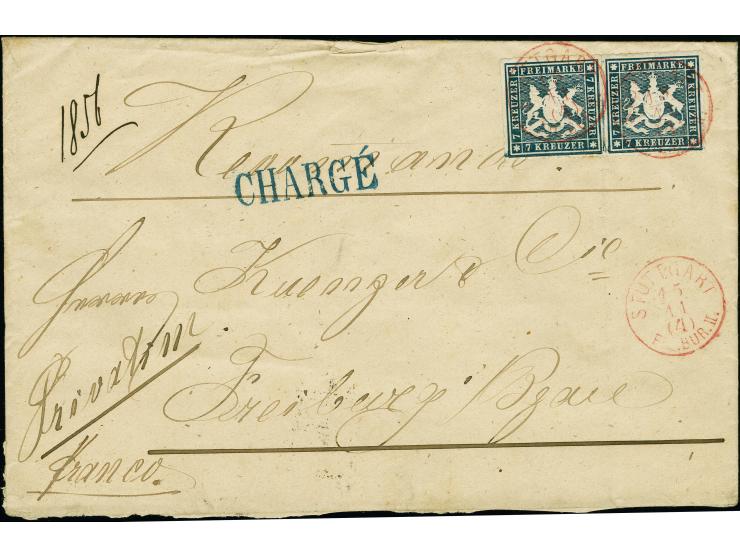 1856
FREIMARKE
7 KREUZER
7 KREUZER
7 KREUZER
FREIMARKE
7 KREUZER
7 KREUZER
7 KREUZER
CHARGÉ
Herrn Kuenzer & Cie
STUTTGART
15
11
(4)
BUR. II.
Privatim
Freiburg i/Bgau
franco.